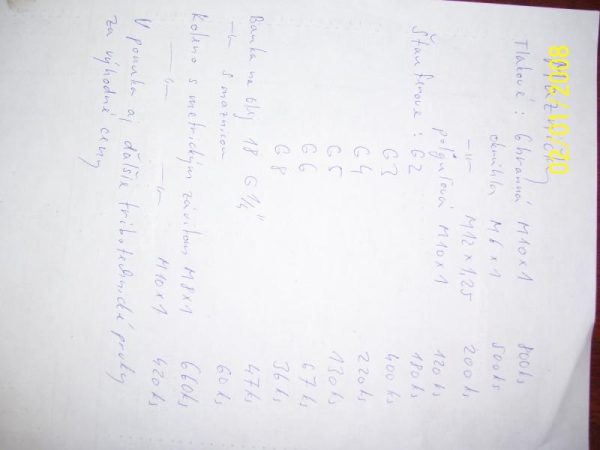 02/01/2008
Maznice
Tlakové: 6hranná M10x1 800ks
okrúhla M6x1 500ks
-"- M12x1,25 200ks
poguľová M10x1 120ks
Štauferove: G2 180ks
G3 400ks
G4 220ks
G5 130ks
G6 67ks
G8 36ks
Banka na olej 18 G 1/4" 47ks
-"- s maznicou 60ks
Koleno s metrickým závitom M8x1 660ks
-"- -"- M10x1 420ks
V ponuke aj ďalšie tribotechnické prvky
za výhodné ceny